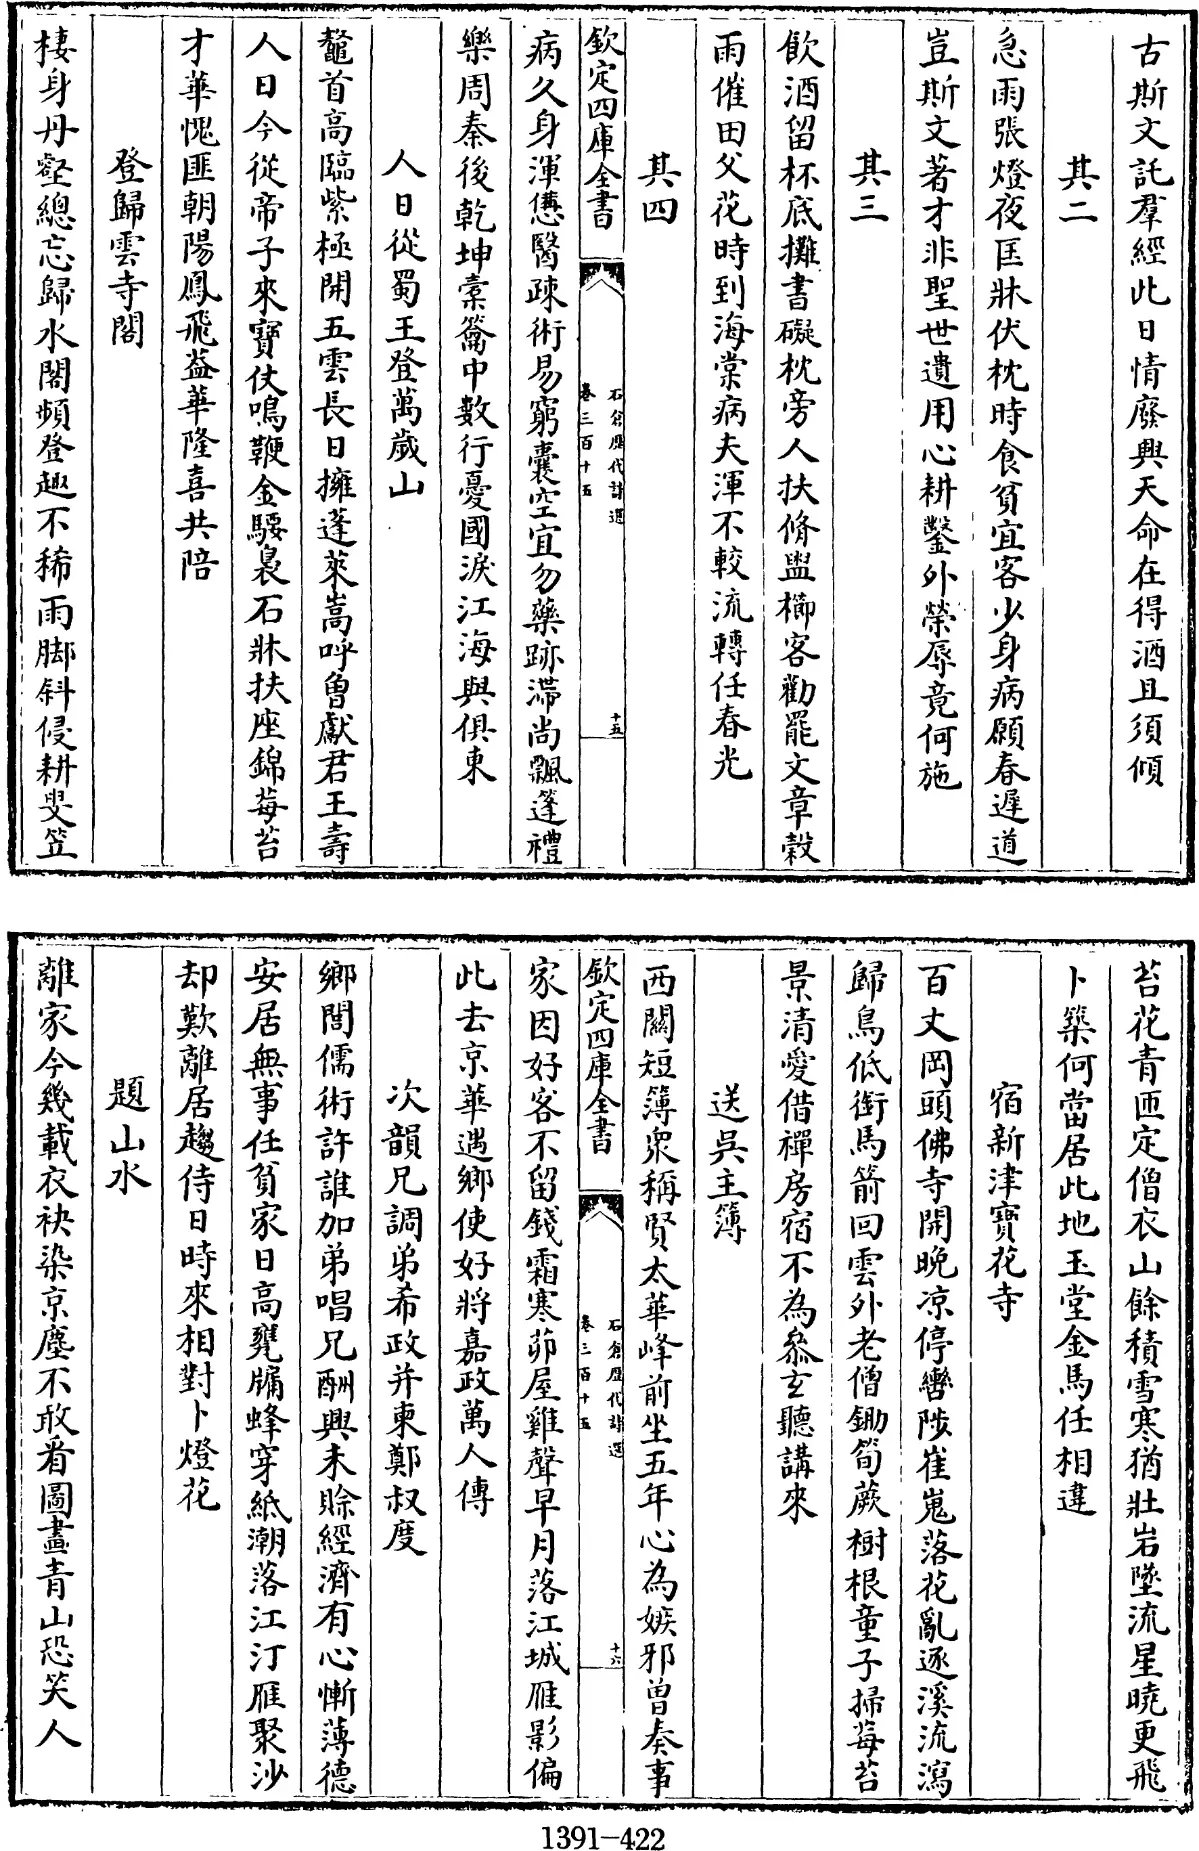 古斯文託羣經此日情廢興天命在得酒且須傾
其二
急雨張燈夜匡牀伏枕時食貧宜客少身病願春遲道
豈斯文著才非聖世遺用心耕鑿外榮辱竟何施
其三
飲酒留杯底攤書礙枕旁人扶脩盥櫛客勸罷文章穀
雨催田父花時到海棠病夫渾不較流轉任春光
其四
欽定四庫全書
石倉歷代詩選
卷三百十五
十五
病久身渾憊醫疎術易窮囊空宜勿藥跡滯尚飄蓬禮
樂周秦後乾坤橐籥中數行憂國淚江海與俱東
人日從蜀王登萬歲山
鼇首高臨紫極開五雲長日擁蓬萊嵩呼魯獻君王壽
人日今從帝子來寶仗鳴鞭金騕褭石牀扶座錦莓苔
才華愧匪朝陽鳳飛葢華隆喜共陪
登歸雲寺閣
棲身丹壑總忘歸水閣頻登趣不稀雨脚斜侵耕叟笠
苔花青匝定僧衣山餘積雪寒猶壯岩墜流星曉更飛
卜築何當居此地玉堂金馬任相違
宿新津寶花寺
百丈岡頭佛寺開晚凉停轡陟崔嵬落花亂逐溪流瀉
歸鳥低銜馬箭回雲外老僧鋤筍蕨樹根童子掃莓苔
景清愛借禪房宿不為叅玄聽講來
送吳主簿
西關短簿衆稱賢太華峰前坐五年心為嫉邪曽奏事
欽定四庫全書
石倉歷代詩選
卷三百十五
十六
家因好客不留錢霜寒茆屋雞聲早月落江城雁影偏
此去京華遇鄉使好將嘉政萬人傳
次韻兄調弟希政并柬鄭叔度
鄉閭儒術許誰加弟唱兄酬興未賒經濟有心慚薄德
安居無事任貧家日高甕牖蜂穿紙潮落江汀雁聚沙
却歎離居趨侍日時來相對卜燈花
題山水
離家今幾載衣袂染京塵不敢看圖畫青山恐笑人
1391-422